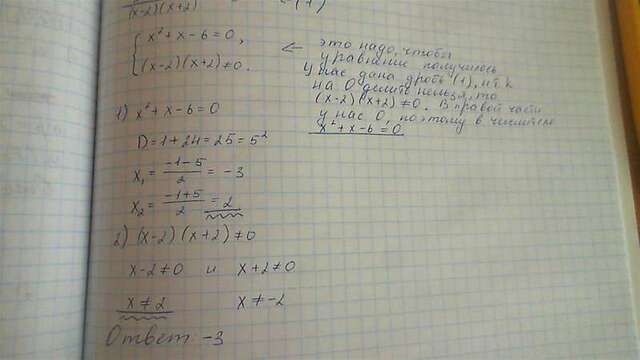 (x-2)(x+2) (1)
{ x² + x - 6 = 0,
(x-2)(x+2) ≠ 0.
← это надо, чтобы
уравнение получилось
у нас дана дробь (1), и т.к
на 0 делить нельзя, то
(x-2)(x+2) ≠ 0. В правой части
у нас 0, поэтому в числителе
x² + x - 6 = 0
1) x² + x - 6 = 0
D = 1 + 24 = 25 = 5²
x₁ = (-1-5)/2 = -3
x₂ = (-1+5)/2 = 2
2) (x-2)(x+2) ≠ 0
x-2 ≠ 0 и x+2 ≠ 0
x ≠ 2 x ≠ -2
Ответ -3